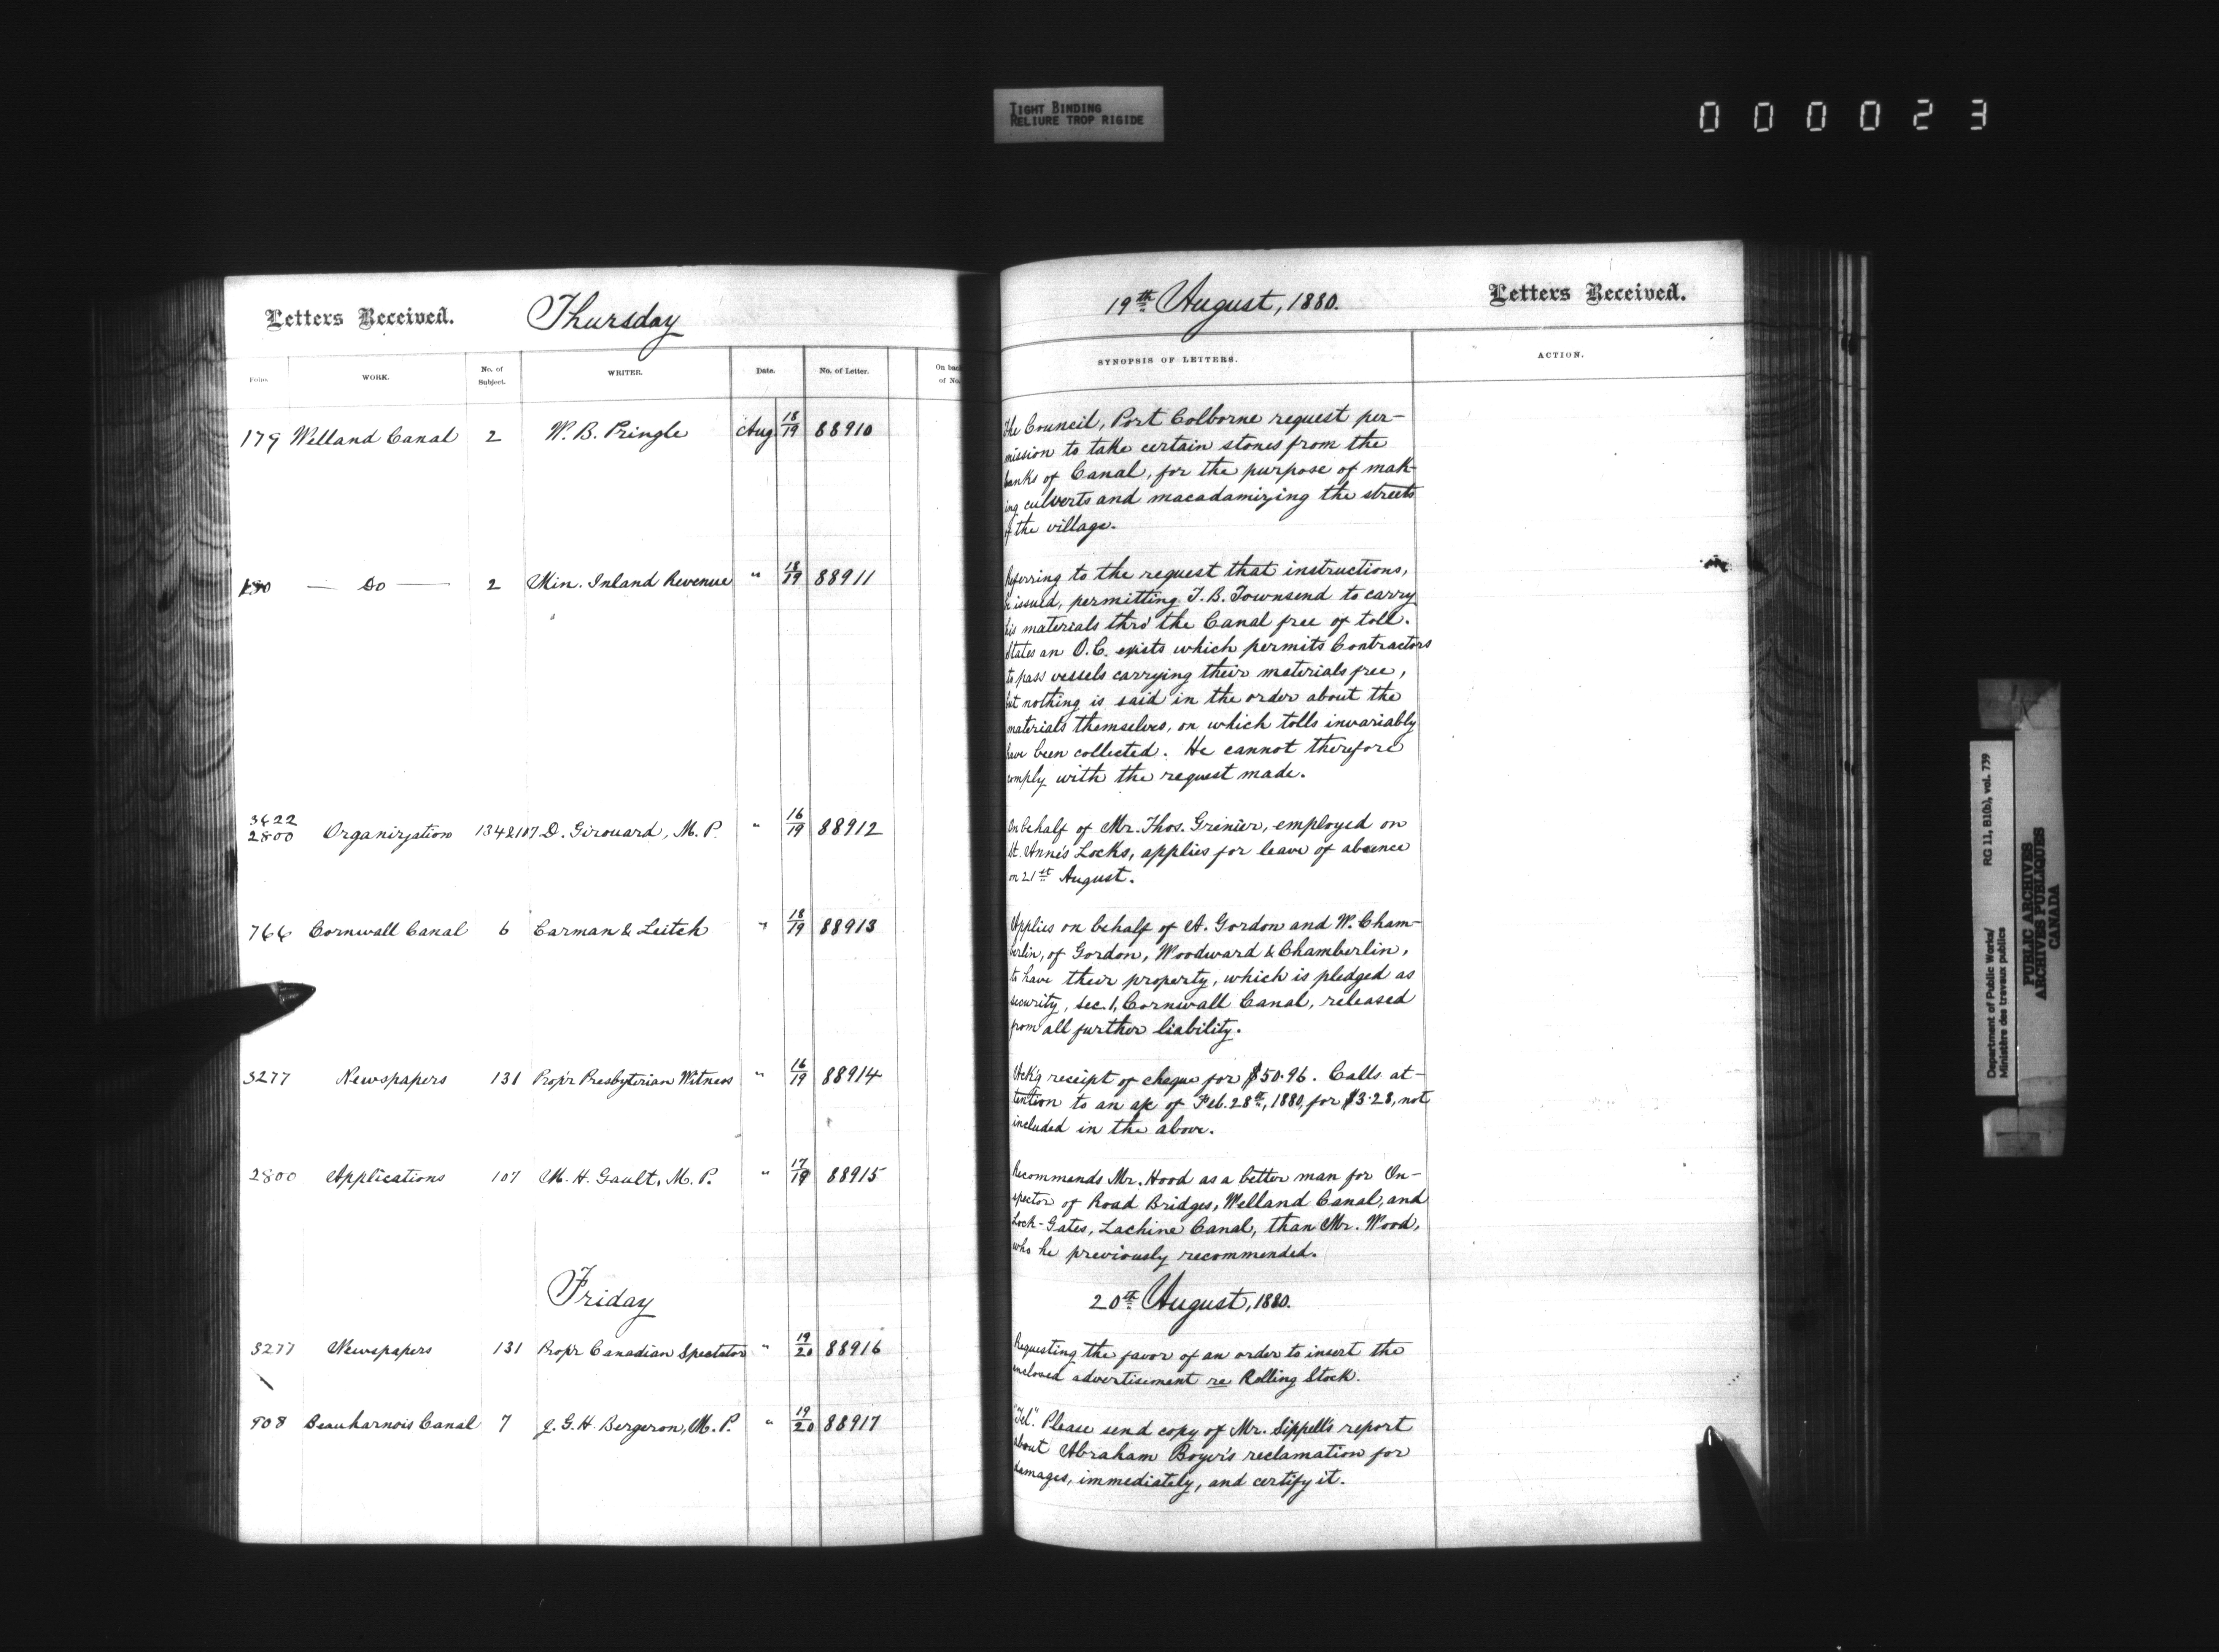 TIGHT BINDING
RELIURE TROP RIGIDE
000023
Letters Received. Thursday
Folio. WORK. No. of Subject. WRITER. Date. No. of Letter. On back of No.
179 Welland Canal 2 W. B. Pringle Aug 18/19 88910
— Do — 2 Min. Inland Revenue " 18/19 88911
3622
2800 Organization 134 & 107 D. Girouard, M. P. " 16/19 88912
766 Cornwall Canal 6 Carman & Leitch " 18/19 88913
3277 Newspapers 131 Prop'r Presbyterian Witness " 16/19 88914
2800 Applications 107 M. H. Gault, M. P. " 17/19 88915
Friday
3277 Newspapers 131 Prop'r Canadian Spectator " 19/20 88916
908 Beauharnois Canal 7 J. G. H. Bergeron, M. P. " 19/20 88917
19th August, 1880. Letters Received.
SYNOPSIS OF LETTERS. ACTION.
The Council, Port Colborne request per-
mission to take certain stones from the
banks of Canal, for the purpose of mak-
ing culverts and macadamizing the streets
of the village.
Referring to the request that instructions,
be issued, permitting T. B. Townsend to carry
his materials thro' the Canal free of toll.
States an O. C. exists which permits Contractors
to pass vessels carrying their materials free,
but nothing is said in the order about the
materials themselves, on which tolls invariably
have been collected. He cannot therefore
comply with the request made.
On behalf of Mr. Thos. Grenier, employed on
St. Anne's Locks, applies for leave of absence
on 21st August.
Applies on behalf of A. Gordon and W. Cham-
berlin, of Gordon, Woodward & Chamberlin,
to have their property, which is pledged as
security, sec. 1, Cornwall Canal, released
from all further liability.
Ack'g receipt of cheque for $50.96. Calls at-
tention to an a/c of Feb. 28th, 1880, for $3.28, not
included in the above.
Recommends Mr. Hood as a better man for In-
spector of Road Bridges, Welland Canal, and
Lock-Gates, Lachine Canal, than Mr. Wood,
who he previously recommended.
20th August, 1880.
Requesting the favor of an order to insert the
enclosed advertisement re Rolling Stock.
"Tel." Please send copy of Mr. Sippell's report
about Abraham Boyer's reclamation for
damages, immediately, and certify it.
Department of Public Works/ RG 11, B1(b), vol. 739
Ministère des travaux publics
PUBLIC ARCHIVES
ARCHIVES PUBLIQUES
CANADA